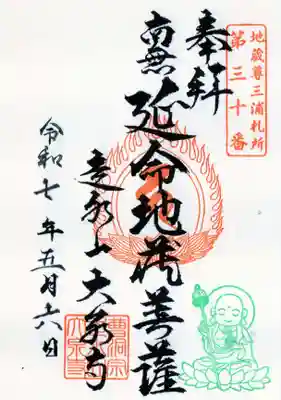 地蔵尊三浦札所
第三十番
奉拝
南無延命地蔵菩薩
大泉寺
令和七年五月六日
曹洞宗